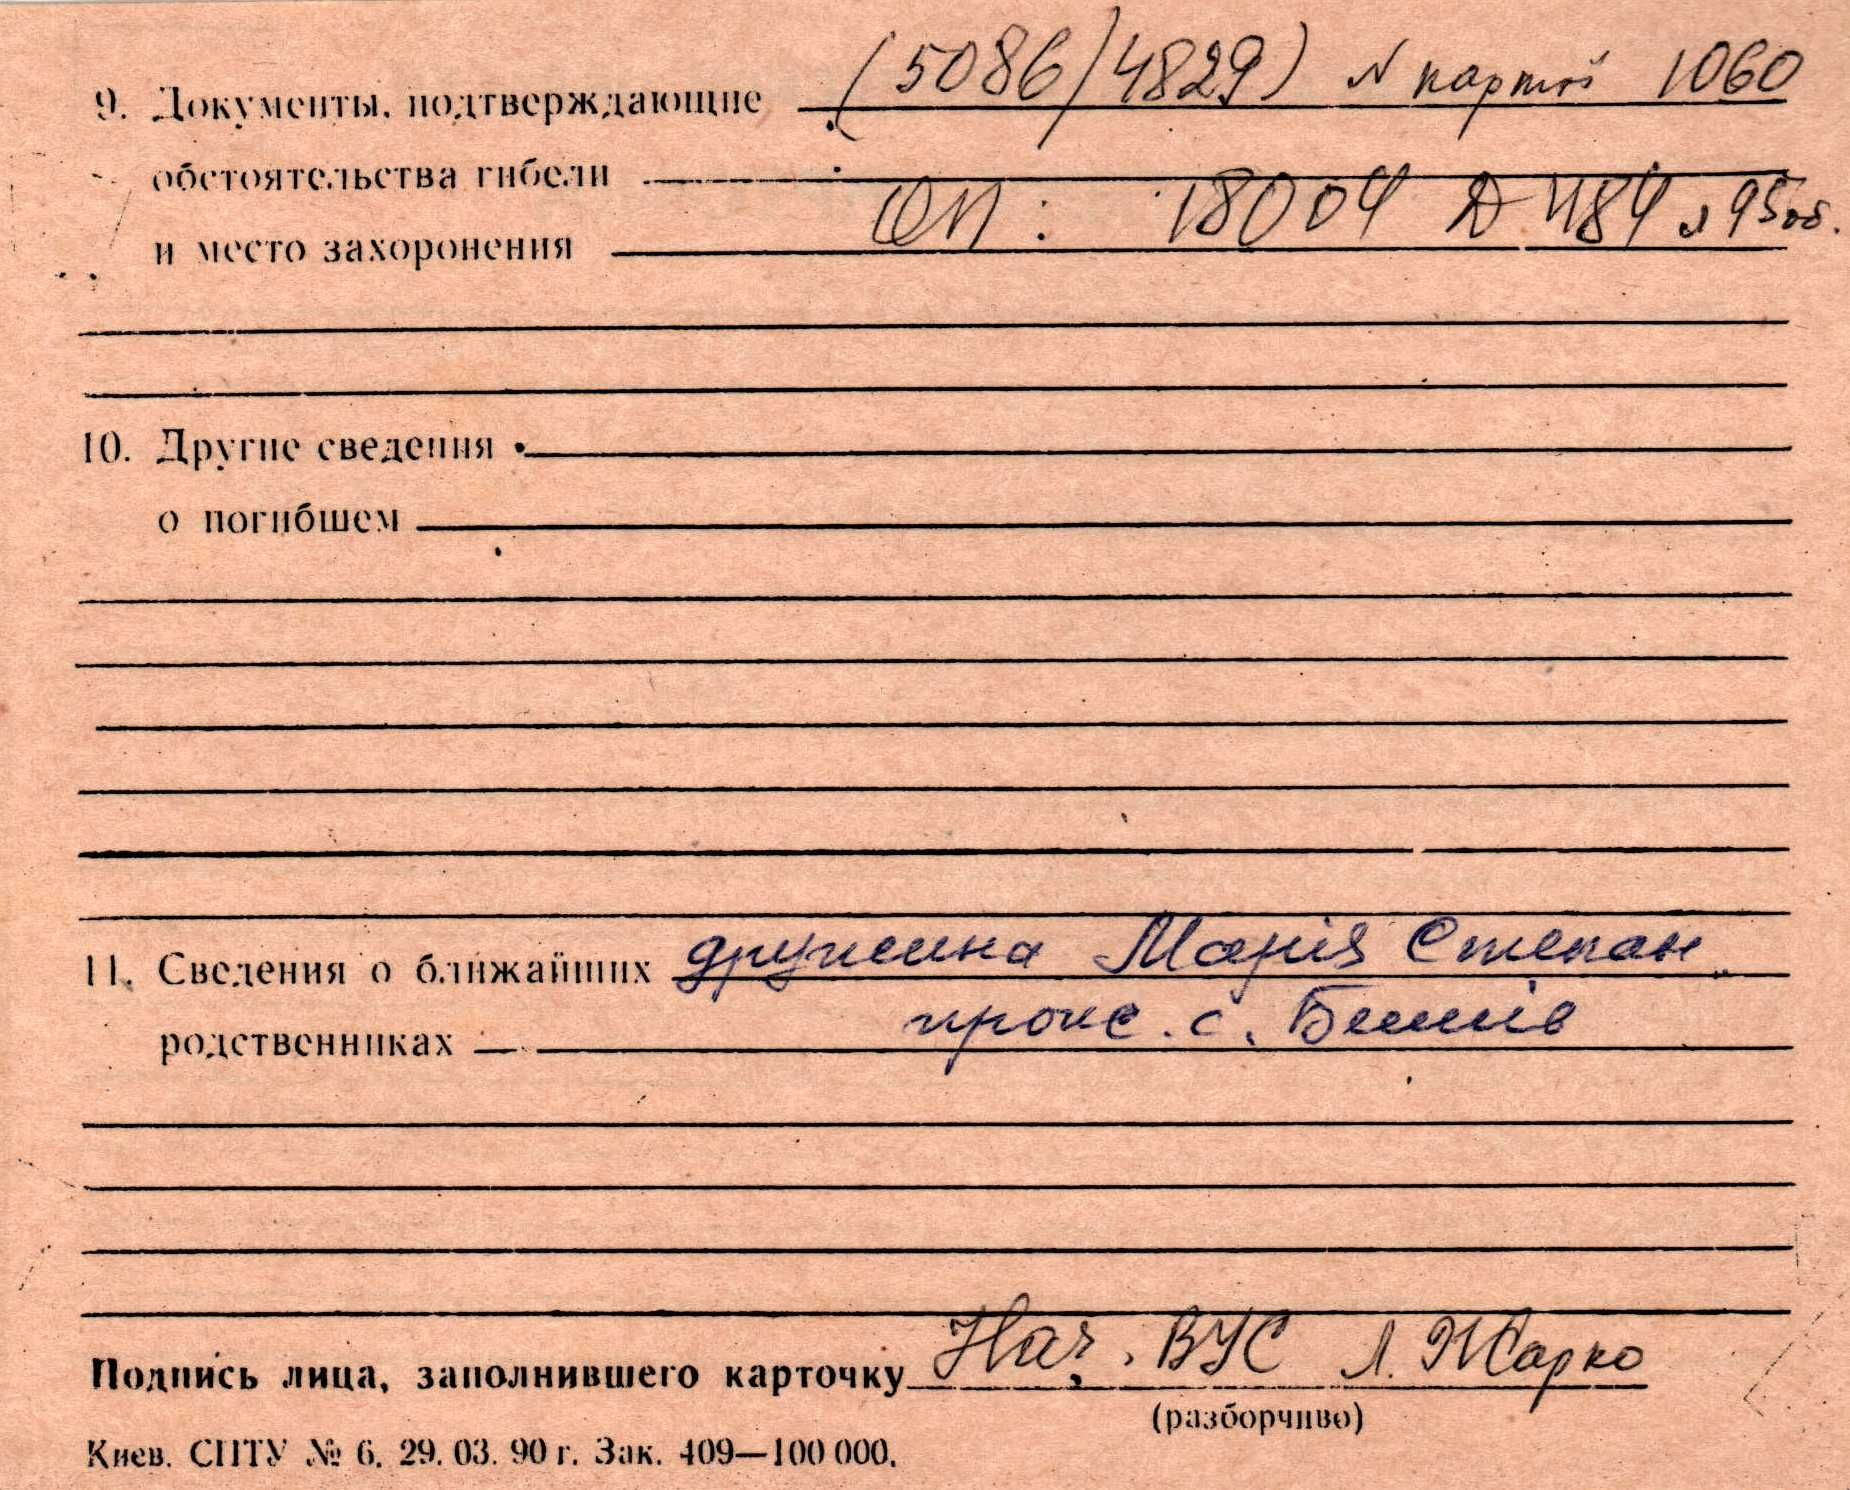 9. Документы, подтверждающие (5086/4829) N картоі 1060
обстоятельства гибели
и место захоронения ОП: 18004 Д 484 л 95об.
10. Другие сведения
о погибшем
11. Сведения о ближайших дружина Марія Степан
родственниках прож. с. Бишів
Подпись лица, заполнившего карточку Нач. ВУС Л. Жарко
(разборчиво)
Киев. СПТУ № 6. 29. 03. 90 г. Зак. 409—100 000.